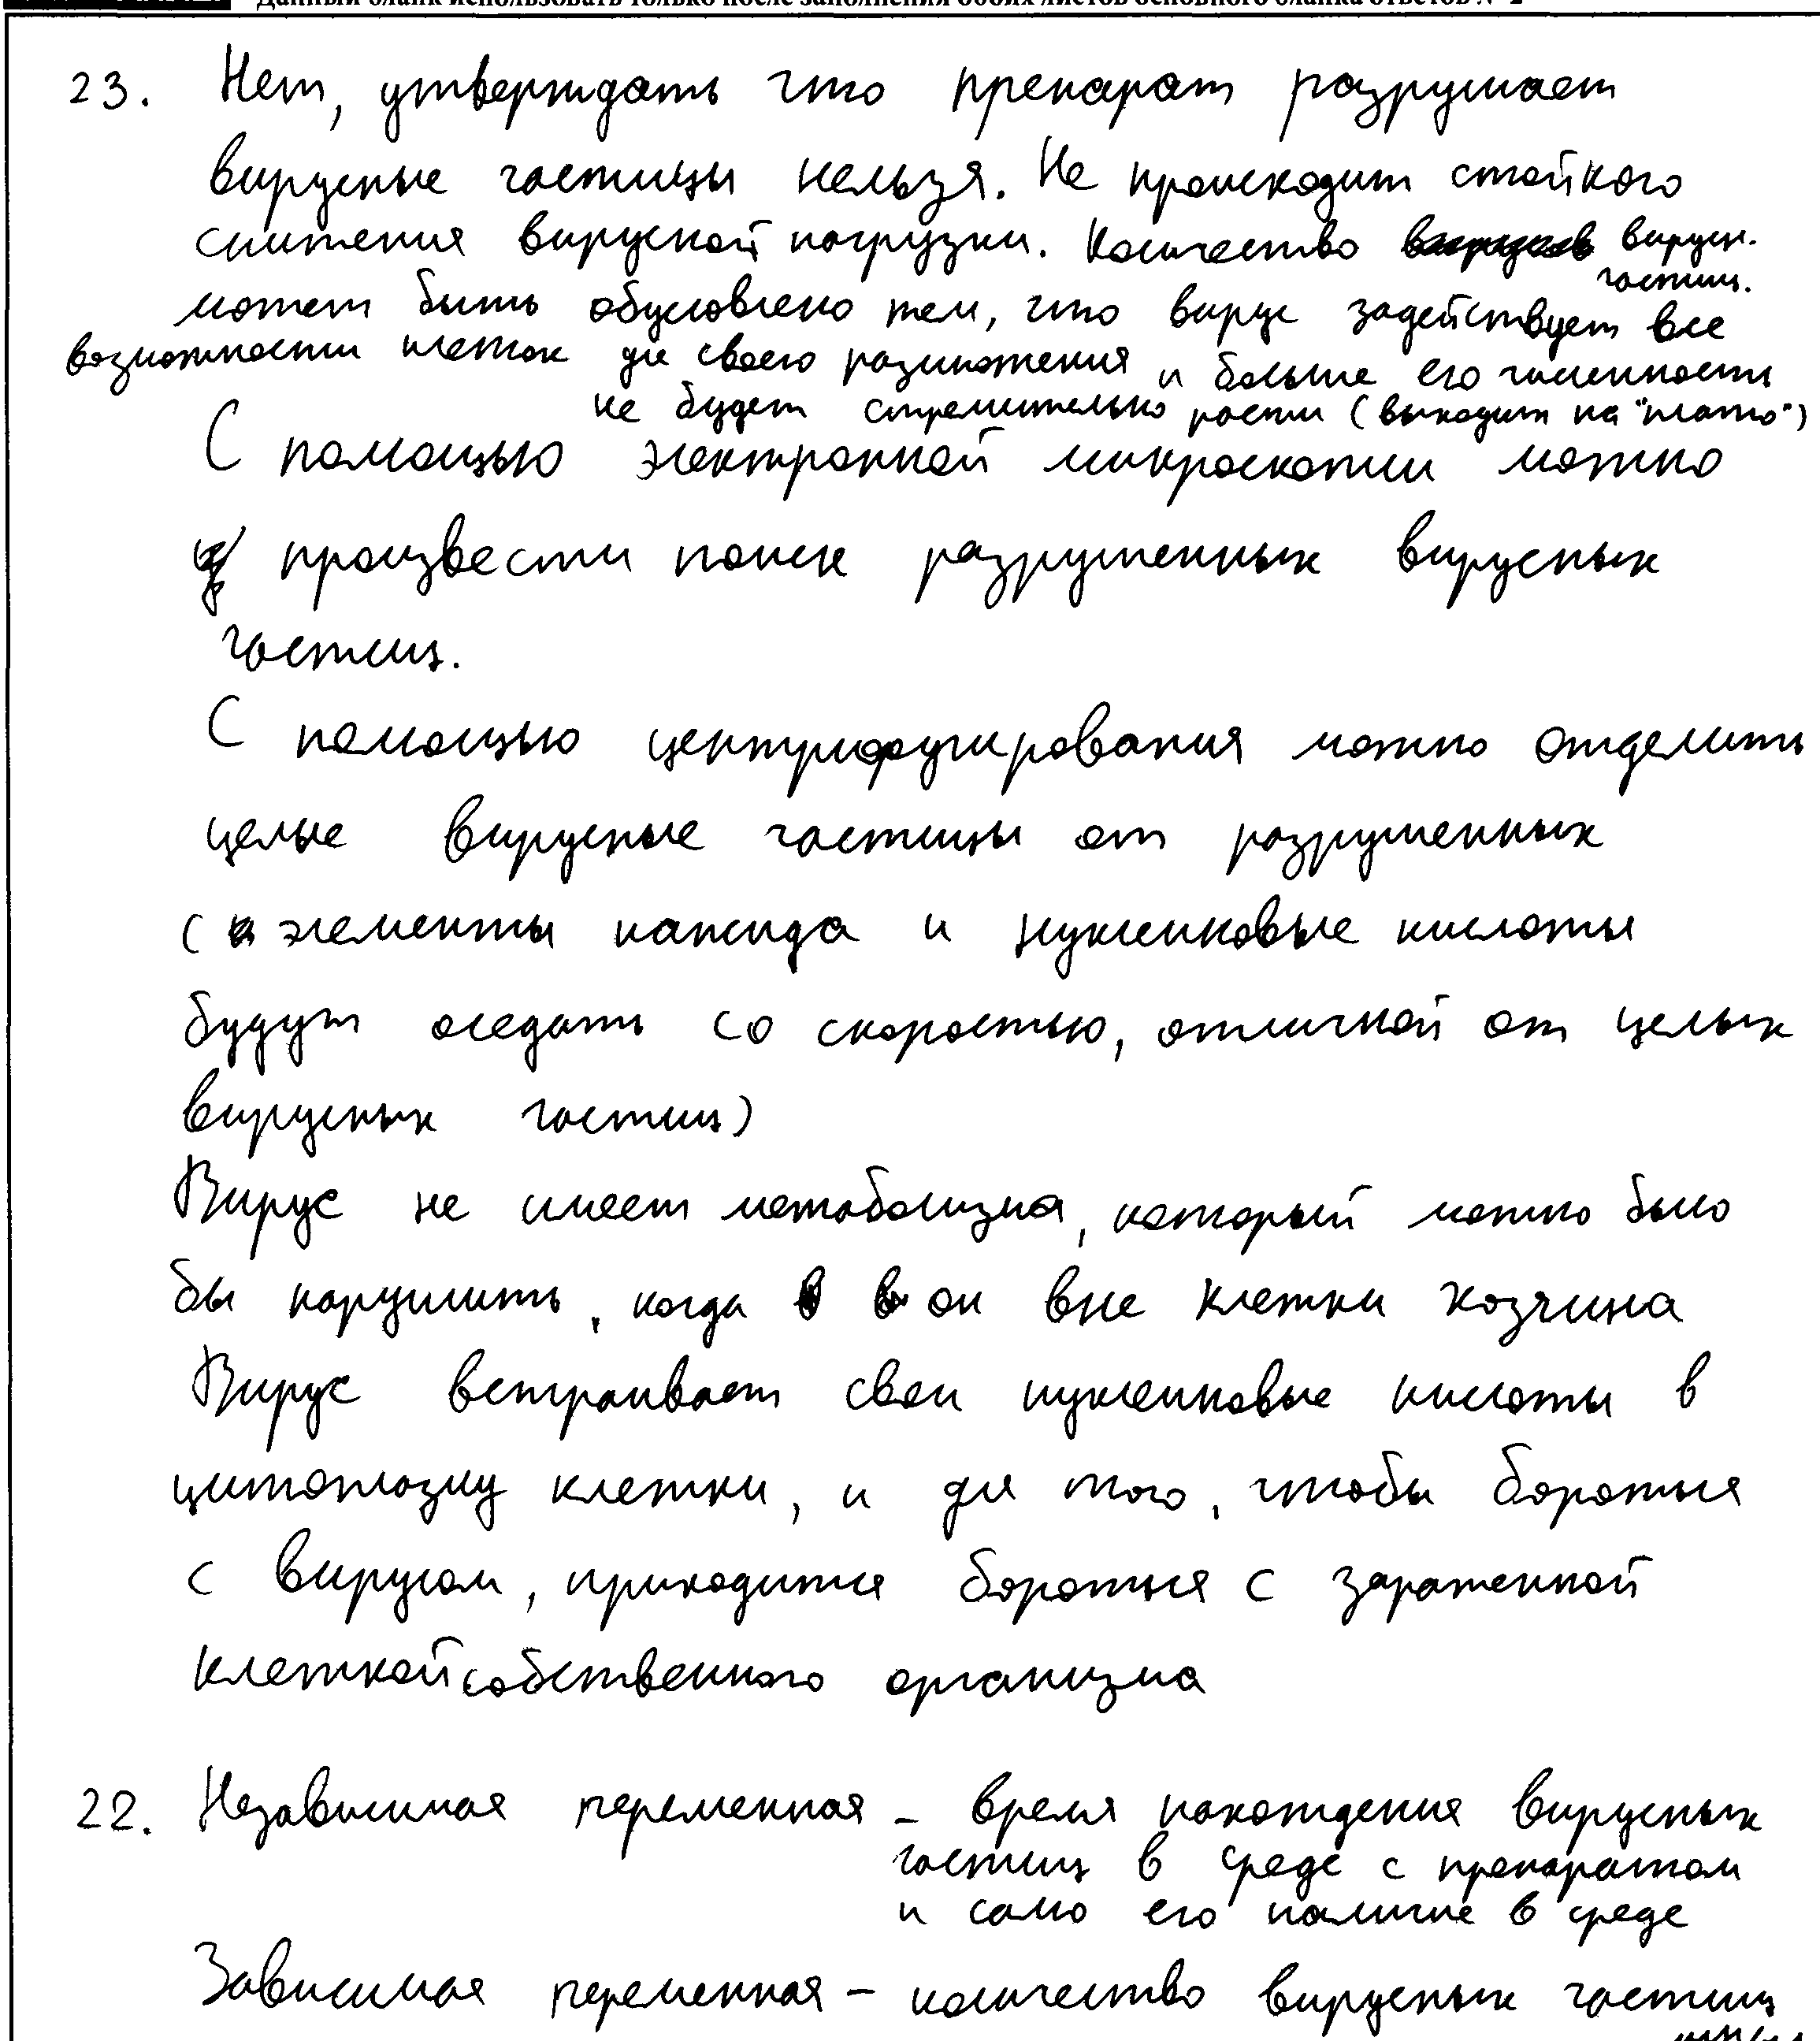 Данный бланк использовать только после заполнения обоих листов основного бланка ответов № 2
23. Нет, утверждать что препарат разрушает
вирусные частицы нельзя. Не происходит стойкого
снижения вирусной нагрузки. Количество вирусн.
частиц.
может быть обусловлено тем, что вирус задействует все
возможности клеток для своего размножения и больше его численность
не будет стремительно расти (выходит на "плато")
С помощью электронной микроскопии можно
произвести поиск разрушенных вирусных
частиц.
С помощью центрифугирования можно отделить
целые вирусные частицы от разрушенных
(элементы капсида и нуклеиновые кислоты
будут оседать со скоростью, отличной от целых
вирусных частиц)
Вирус не имеет метаболизма, который можно было
бы нарушить, когда он вне клетки хозяина
Вирус встраивает свои нуклеиновые кислоты в
цитоплазму клетки, и для того, чтобы бороться
с вирусом, приходится бороться с зараженной
клеткой собственного организма
22. Независимая переменная - время нахождения вирусных
частиц в среде с препаратом
и само его наличие в среде
Зависимая переменная - количество вирусных частиц